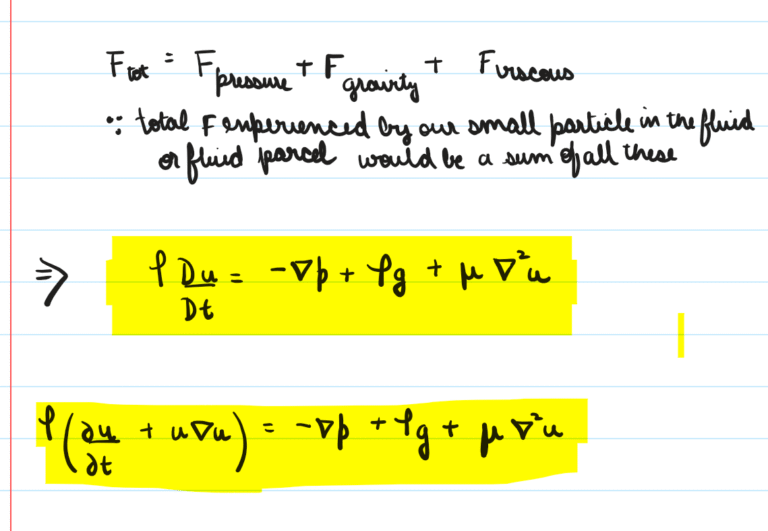 F_tot = F_pressure + F_grairity + F_viscous
∵ total F experienced by our small particle in the fluid
or fluid parcel would be a sum of all these
⇒ ρ Du/Dt = -∇p + ρg + μ ∇²u
ρ(∂u/∂t + u∇u) = -∇p + ρg + μ ∇²u